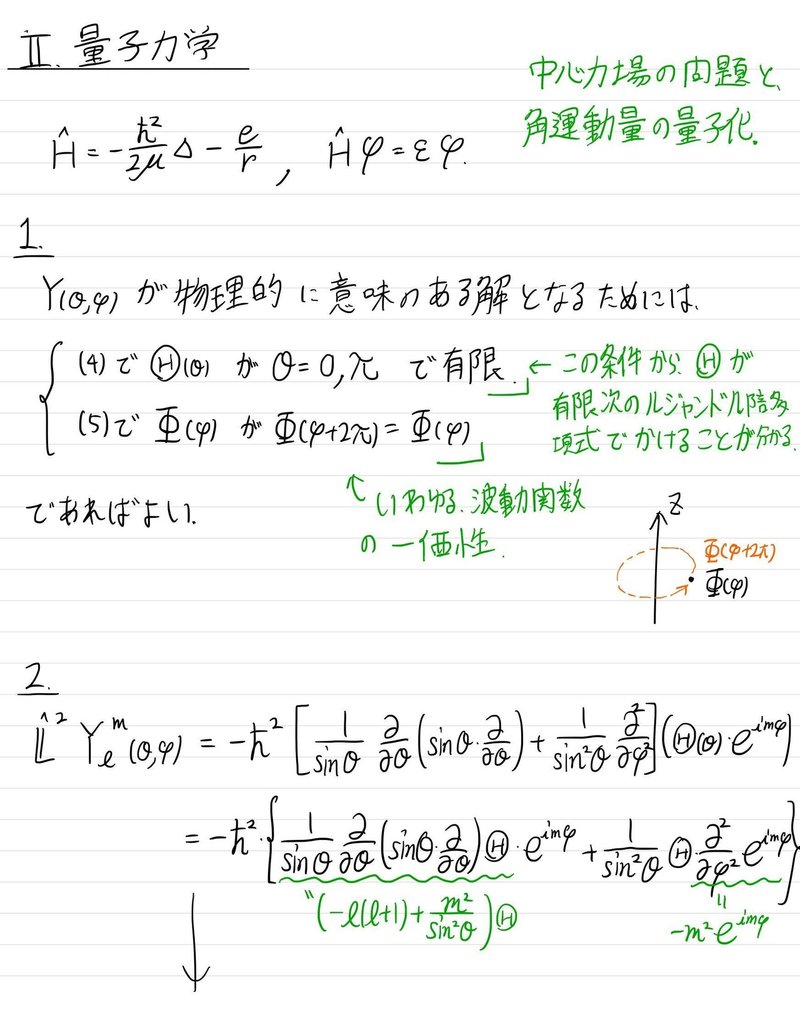 II. 量子力学
中心力場の問題と、
角運動量の量子化.
Ĥ = -ħ²/2μ Δ - e/r , Ĥφ = εφ.
1.
Y(θ,φ) が物理的に意味のある解となるためには、
(4)で Θ(θ) が θ = 0, π で有限.
← この条件から Θ が
有限次のルジャンドル陪多
項式でかけることが分かる.
(5)で Φ(φ) が Φ(φ+2π) = Φ(φ)
であればよい.
↑ いわゆる、波動関数
の一価性.
z
Φ(φ+2π)
Φ(φ)
2.
L̂² Yₗᵐ(θ,φ) = -ħ² [ 1/sinθ ∂/∂θ (sinθ · ∂/∂θ) + 1/sin²θ ∂²/∂φ² ] (Θ(θ) · e^{imφ})
= -ħ² · { 1/sinθ ∂/∂θ (sinθ · ∂/∂θ) Θ · e^{imφ} + 1/sin²θ Θ · ∂²/∂φ² e^{imφ} }
〃 (-l(l+1) + m²/sin²θ) Θ
〃 -m² · e^{imφ}